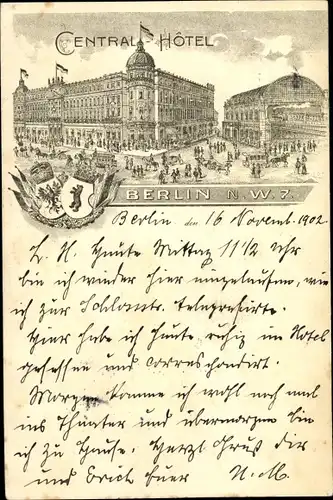 CENTRAL HÔTEL
BERLIN N.W.7.
Berlin den 16 Novemb. 1902.
L. H. Heute Mittag 11 1/2 Uhr
bin ich wieder hier eingelaufen, wie
ich zur telegrafirte.
Hier habe ich heute ruhig im Hotel
gesessen und correspondirt.
Morgen komme ich wohl noch mal
ins Theater und übermorgen bin
ich zu Hause. Herzl Gruß dir
und Erich Euer H. M.